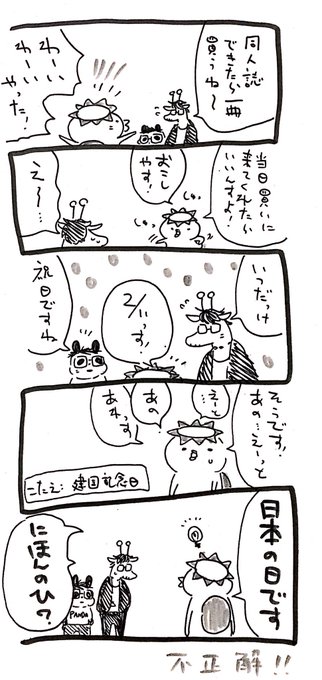 同人誌
できたら一冊
買うね〜
わーい
わーい
やった!
当日買いに
来てくれたら
いいんすよ!
おこし
やす!
しゅっ
しゅっ
え〜…
いつだっけ
2/11っす!
祝日ですね
そうです!
あの…え〜っと
…え〜と
あの
あれっす!
こたえ:建国記念日
日本の日です
にほんのひ?
PANDA
不正解!!